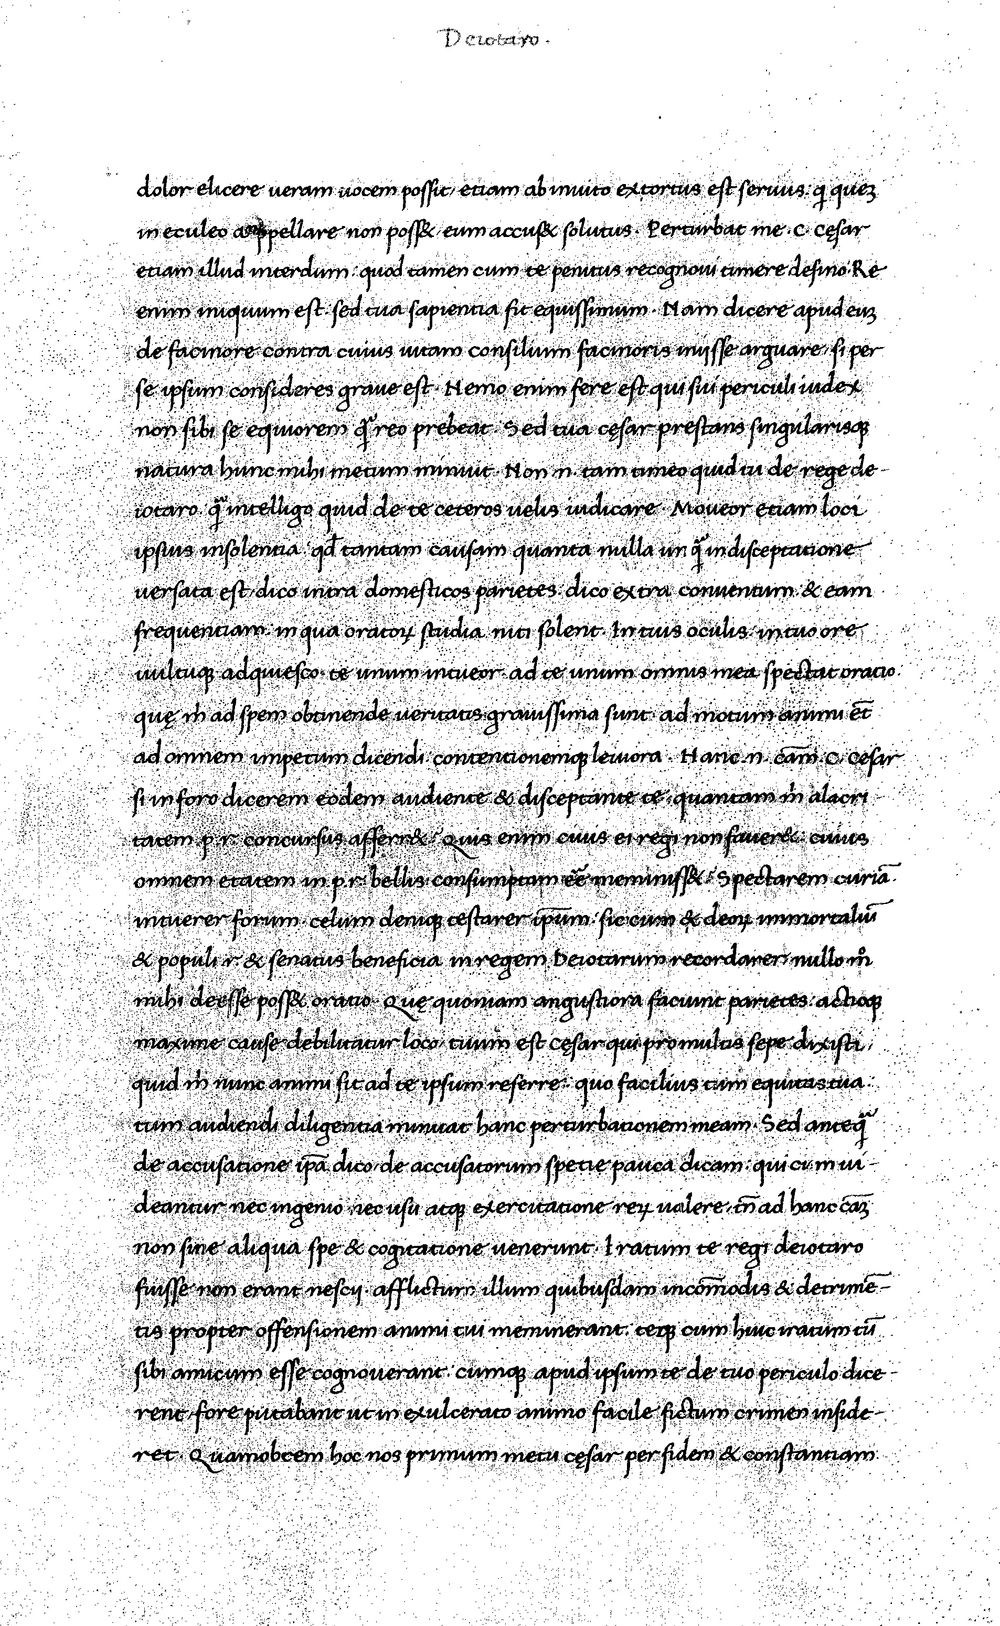 Deiotaro.
dolor elicere ueram uocem possit, etiam ab inuito extortus est seruus. q̨ queȝ
in eculeo appellare non poss& eum accus& solutus. Perturbat me .c. cęsar
etiam illud interdum. quod tamen cum te penitus recognoui timere desino. Re
enim iniquum est. sed tua sapientia fit equissimum. Nam dicere apud euȝ
de facinore contra cuius uitam consilium facinoris inijsse arguare. si per
se ipsum consideres graue est. Nemo enim fere est qui sui periculi iudex
non sibi se equiorem q̃ reo prebeat. Sed tua cęsar prestans singularisqȝ
natura hunc mihi metum minuit. Non .n. tam timeo quid tu de rege de-
iotaro q̃ intelligo quid de te ceteros uelis iudicare. Moueor etiam loci
ipsius insolentia qđ tantam causam quanta nulla un q̃ in disceptatione
uersata est, dico intra domesticos parietes. dico extra conuentum & eam
frequentiam. in qua oratoꝝ studia niti solent. In tuis oculis. in tuo ore
uultuqȝ adquiesco. te unum intueor. ad te unum omnis mea spectat oratio.
quę m̃ ad spem obtinende ueritatis grauissima sunt. ad motum animi et̃
ad omnem impetum dicendi contentionemqȝ leuiora. Hanc .n. cãm .c. cęsar
si in foro dicerem eodem audiente & disceptante te. quantam m̃ alacri
tatem .p.r. concursus afferr&. Quis enim ciuis ei regi non fauer&. cuius
omnem etatem in .p.r. bellis consumptam eẽ meminiss&. Spectarem curiã.
intuerer forum. celum deniqȝ testarer ip̃um. sic cum & deoꝝ immortaliũ
& populi .r. & senatus beneficia in regem Deiotarum recordarer nullo m̊
mihi deesse poss& oratio. Quę quoniam angustiora faciunt parietes. actioqȝ
maxime cause debilitatur loco. tuum est cęsar qui pro multis sepe dixisti,
quid m̃ nunc animi sit ad te ipsum referre. quo facilius tum equitas tua.
tum audiendi diligentia minuat hanc perturbationem meam. Sed anteq̃
de accusatione ip̃a dico, de accusatorum specie pauca dicam. qui cum ui-
deantur nec ingenio, nec usu atqȝ exercitatione reꝝ ualere. tñ ad hanc cãȝ
non sine aliqua spe & cogitatione uenerunt. Iratum te regi deiotaro
fuisse non erant nescij. afflictum illum quibusdam incom̃odis & detrimẽ-
tis propter offensionem animi tui meminerant. teqȝ cum huic iratum tũ
sibi amicum esse cognouerant. cumqȝ apud ipsum te de tuo periculo dice-
rent. fore putabant ut in exulcerato animo facile fictum crimen inside-
ret. Quamobrem hoc nos primum metu cęsar per fidem & constantiam